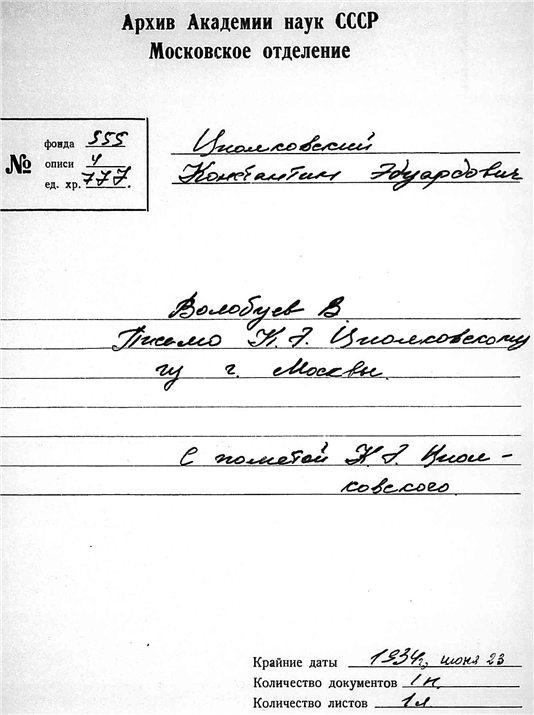 Архив Академии наук СССР
Московское отделение
№
фонда 555
описи 4
ед. хр. 777.
Циолковский
Константин Эдуардович
Волобуев В.
Письмо К. Э. Циолковскому
из г. Москвы.
С пометой К. Э. Циол-
ковского.
Крайние даты 1934г, июня 23
Количество документов 1
Количество листов 1л.